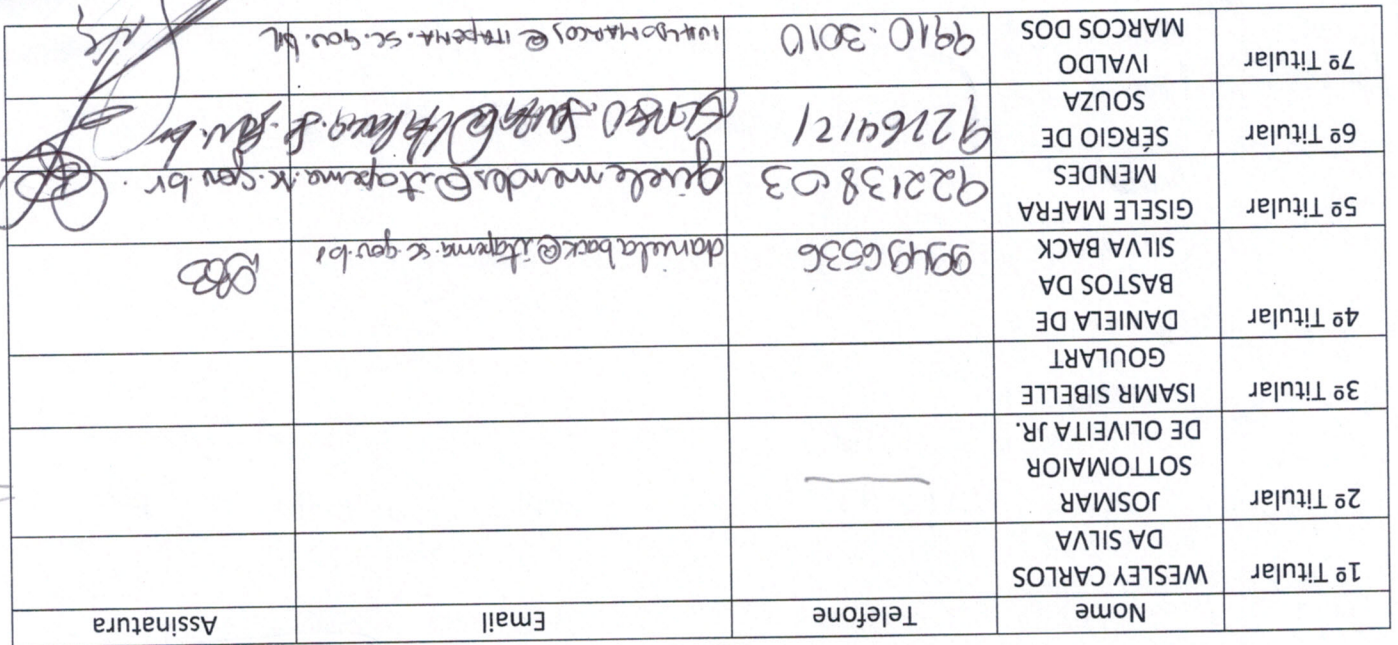 Nome Telefone Email Assinatura
1º Titular WESLEY CARLOS
DA SILVA
2º Titular JOSMAR
SOTTOMAIOR
DE OLIVEITA JR.
3º Titular ISAMR SIBELLE
GOULART
4º Titular DANIELA DE
BASTOS DA
SILVA BACK 99496536 danielaback@itapema.sc.gov.br
5º Titular GISELE MAFRA
MENDES 92213803 gisele.mendes@itapema.sc.gov.br
6º Titular SÉRGIO DE
SOUZA 92164171
7º Titular IVALDO
MARCOS DOS 9910.3010 @itapema.sc.gov.br